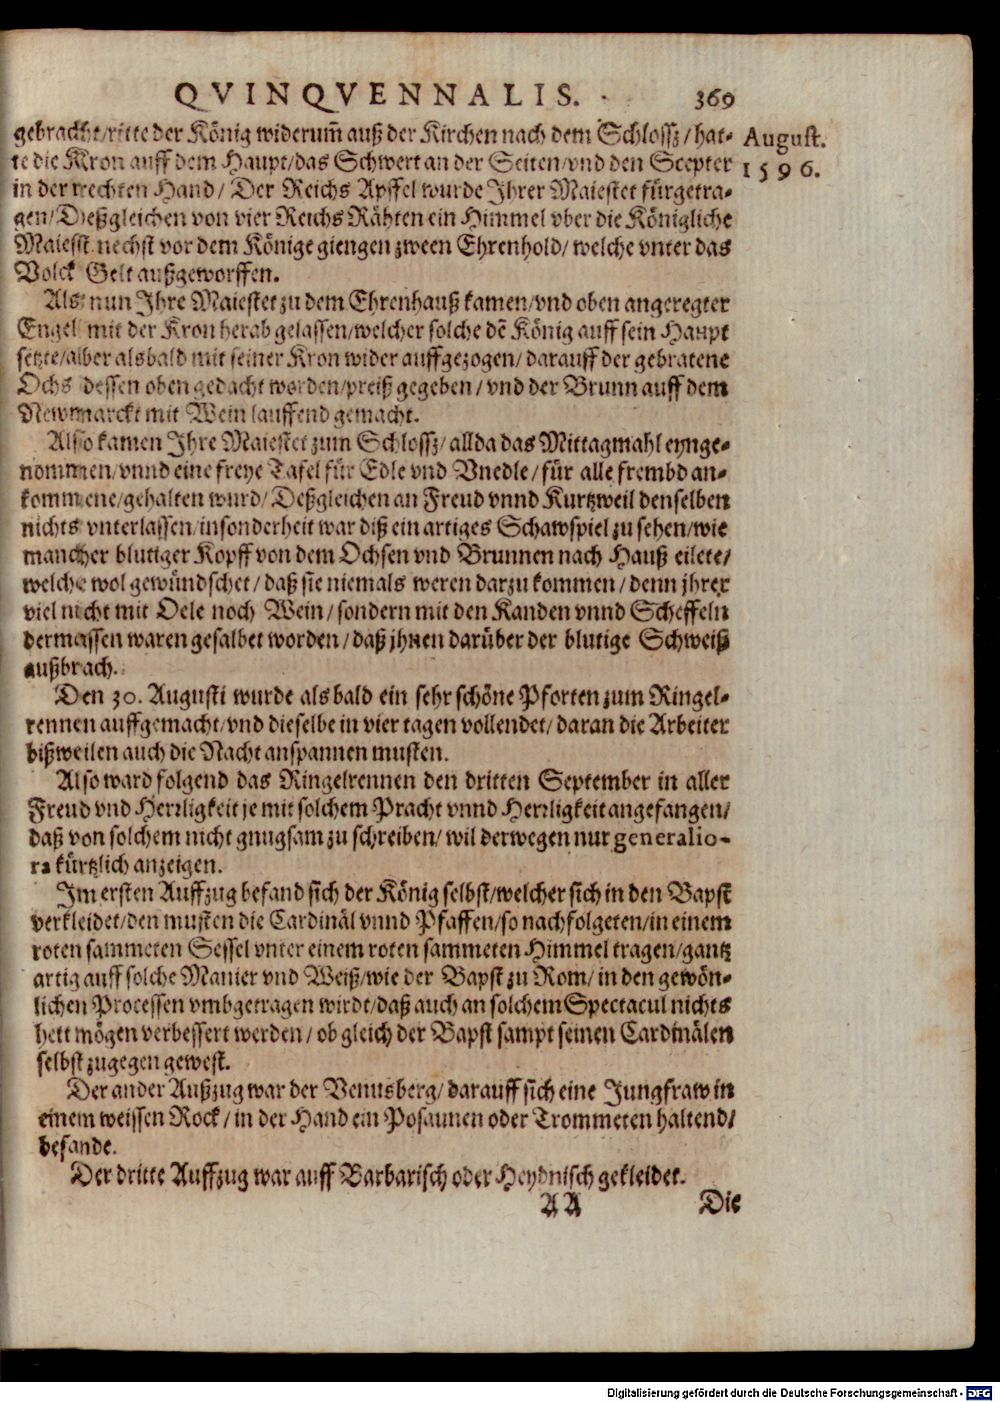 QVINQVENNALIS. 369
gebracht/ ritte der König widerum̃ auß der Kirchen nach dem Schlossz/ hat-
te die Kron auff dem Haupt/ das Schwert an der Seiten/ vnd den Scepter
in der rechten Hand/ Der Reichs Apffel wurde Ihrer Maiestet fürgetra-
gen/ Deßgleichen von vier Reichs Rähten ein Himmel vber die Königliche
Maiesst. nechst vor dem Könige giengen zween Ehrenhold/ welche vnter das
Volck Gelt außgeworffen.
August.
1596.
Als nun Ihre Maiestet zu dem Ehrenhauß kamen/ vnd oben angeregter
Engel mit der Kron herab gelassen/ welcher solche dẽ König auff sein Haupt
setzte/ alber alsbald mit seiner Kron wider auffgezogen/ darauff der gebratene
Ochs dessen oben gedacht worden/ preiß gegeben/ vnd der Brunn auff dem
Newmarckt mit Wein lauffend gemacht.
Also kamen Ihre Maiestet zum Schlossz/ allda das Mittagmahl eynge-
nommen/ vnnd eine freye Tafel für Edle vnd Vnedle/ für alle frembd an-
kommene/ gehalten wurd/ Deßgleichen an Freud vnnd Kurtzweil denselben
nichts vnterlassen/ insonderheit war diß ein artiges Schawspiel zu sehen/ wie
mancher blutiger Kopff von dem Ochsen vnd Brunnen nach Hauß eilete/
welche wol gewündschet/ daß sie niemals weren darzu kommen/ denn jhrer
viel nicht mit Oele noch Wein/ sondern mit den Kanden vnnd Scheffeln
dermassen waren gesalbet worden/ daß jhnen darüber der blutige Schweiß
außbrach.
Den 30. Augusti wurde alsbald ein sehr schöne Pforten zum Ringel-
rennen auffgemacht/ vnd dieselbe in vier tagen vollendet/ daran die Arbeiter
bißweilen auch die Nacht anspannen musten.
Also ward folgend das Ringelrennen den dritten September in aller
Freud vnd Herrligkeit je mit solchem Pracht vnnd Herrligkeit angefangen/
daß von solchem nicht gnugsam zu schreiben/ wil derwegen nur generalio-
ra kürtzlich anzeigen.
Im ersten Auffzug befand sich der König selbst/ welcher sich in den Bapst
verkleidet/ den musten die Cardinäl vnnd Pfaffen/ so nachfolgeten/ in einem
roten sammeten Sessel vnter einem roten sammeten Himmel tragen/ gantz
artig auff solche Manier vnd Weiß/ wie der Bapst zu Rom/ in den gewön-
lichen Processen vmbgetragen wirdt/ daß auch an solchem Spectacul nichts
hett mögen verbessert werden/ ob gleich der Bapst sampt seinen Cardinälen
selbst zugegen gewest.
Der ander Außzug war der Venusberg/ darauff sich eine Jungfraw in
einem weissen Rock/ in der Hand ein Posaunen oder Trommeten haltend/
befande.
Der dritte Auffzug war auff Barbarisch oder Heydnisch gekleidet.
AA Die
Digitalisierung gefördert durch die Deutsche Forschungsgemeinschaft - DFG